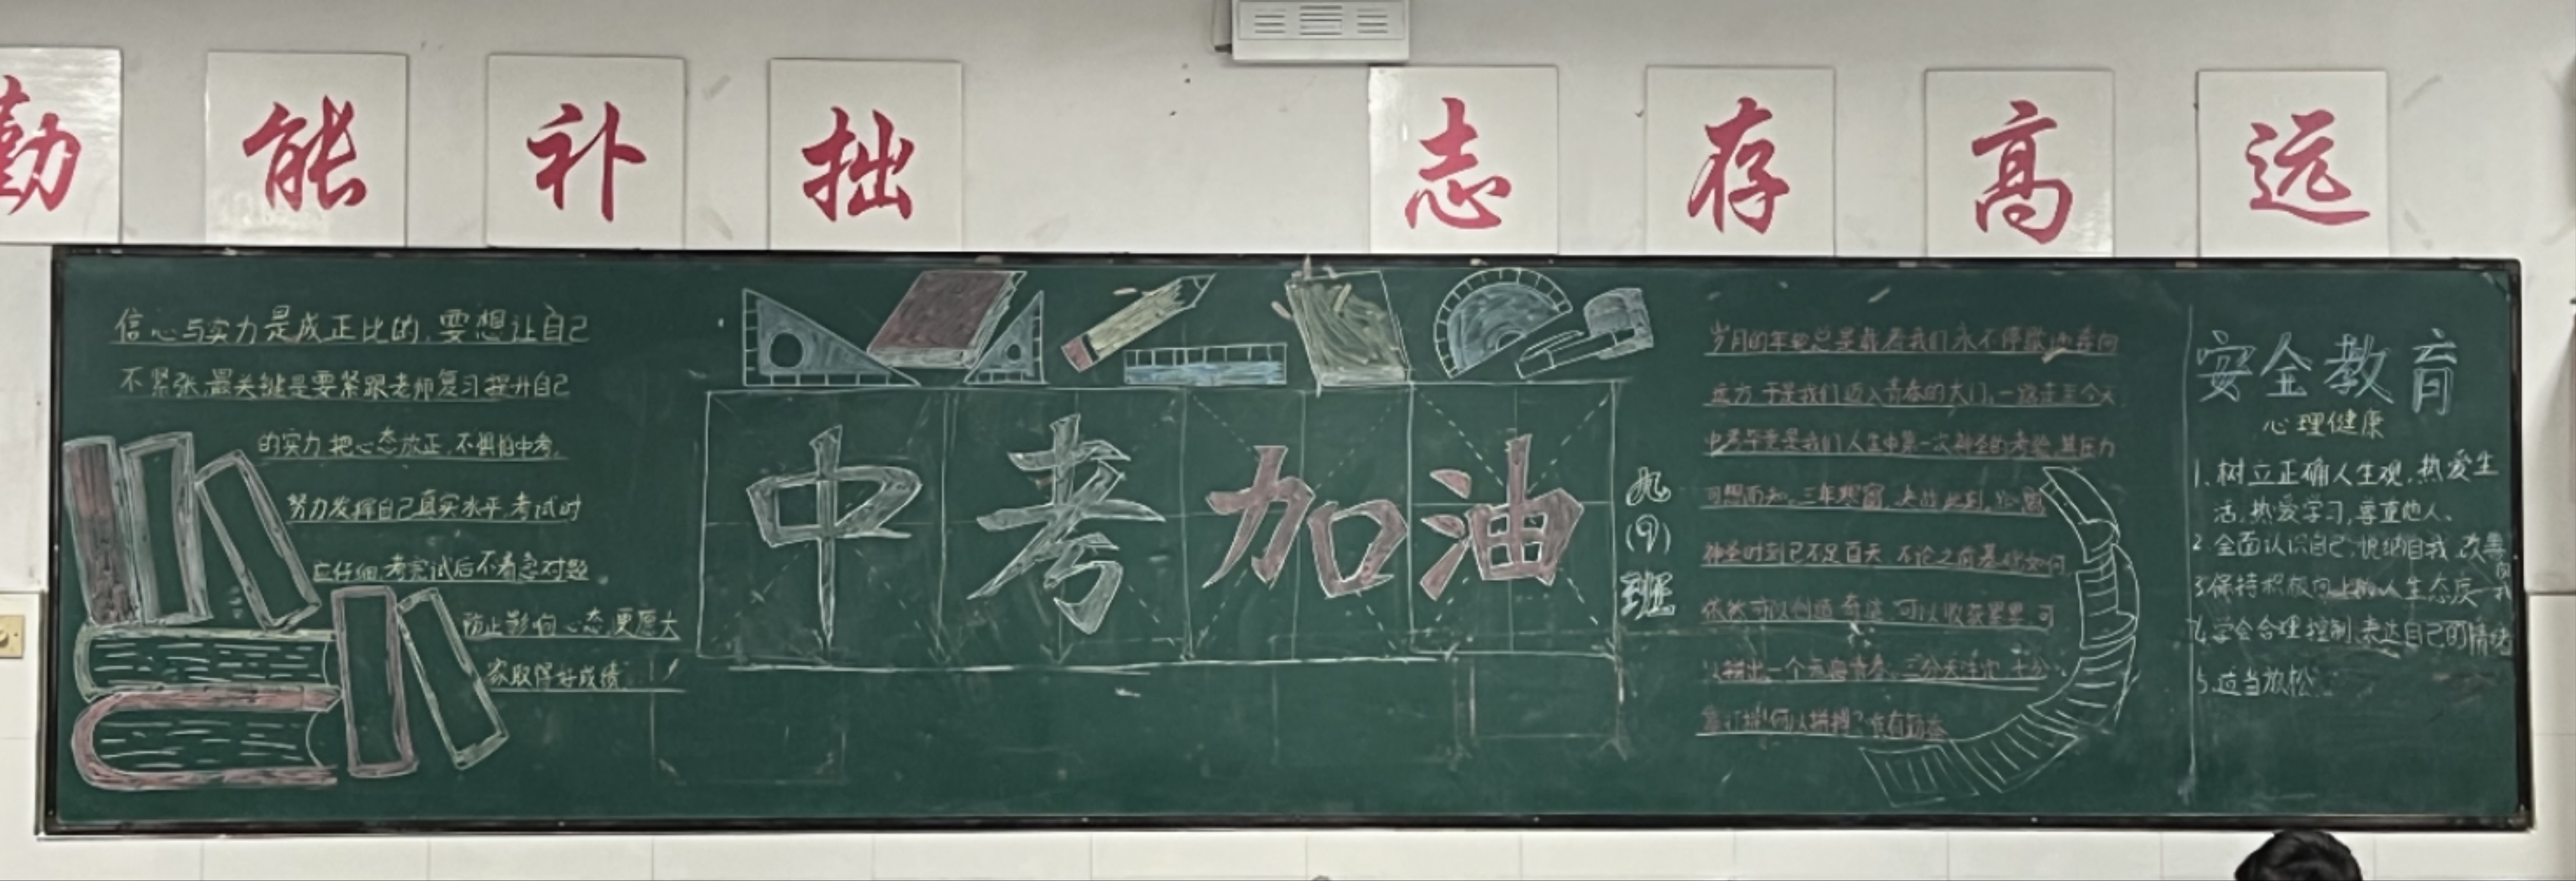 勤能补拙
志存高远
信心与实力是成正比的,要想让自己
不紧张,最关键是要紧跟老师复习提升自己
的实力,把心态放正,不惧怕中考,
努力发挥自己真实水平,考试时
应仔细,考完试后不着急对题
防止影响心态,更愿大
家取得好成绩!
中考加油
九(9)班
岁月的年轮总是载着我们永不停歇地奔向
远方,于是我们迈入青春的大门,一路走至今天
中考毕竟是我们人生中第一次神圣的考验,其压力
可想而知,三年寒窗,决战此刻,
神圣时刻已不足百天,不论之前基础如何
依然可以创造奇迹,可以收获果思,可
以拼出一个无悔青春,三分天注定,七分
靠打拼,何以拼搏?唯有勤奋
安全教育
心理健康
1.树立正确人生观,热爱生
活,热爱学习,尊重他人、
2.全面认识自己,悦纳自我,改善
3.保持积极向上的人生态度
4.学会合理控制,表达自己的情绪
5.适当放松